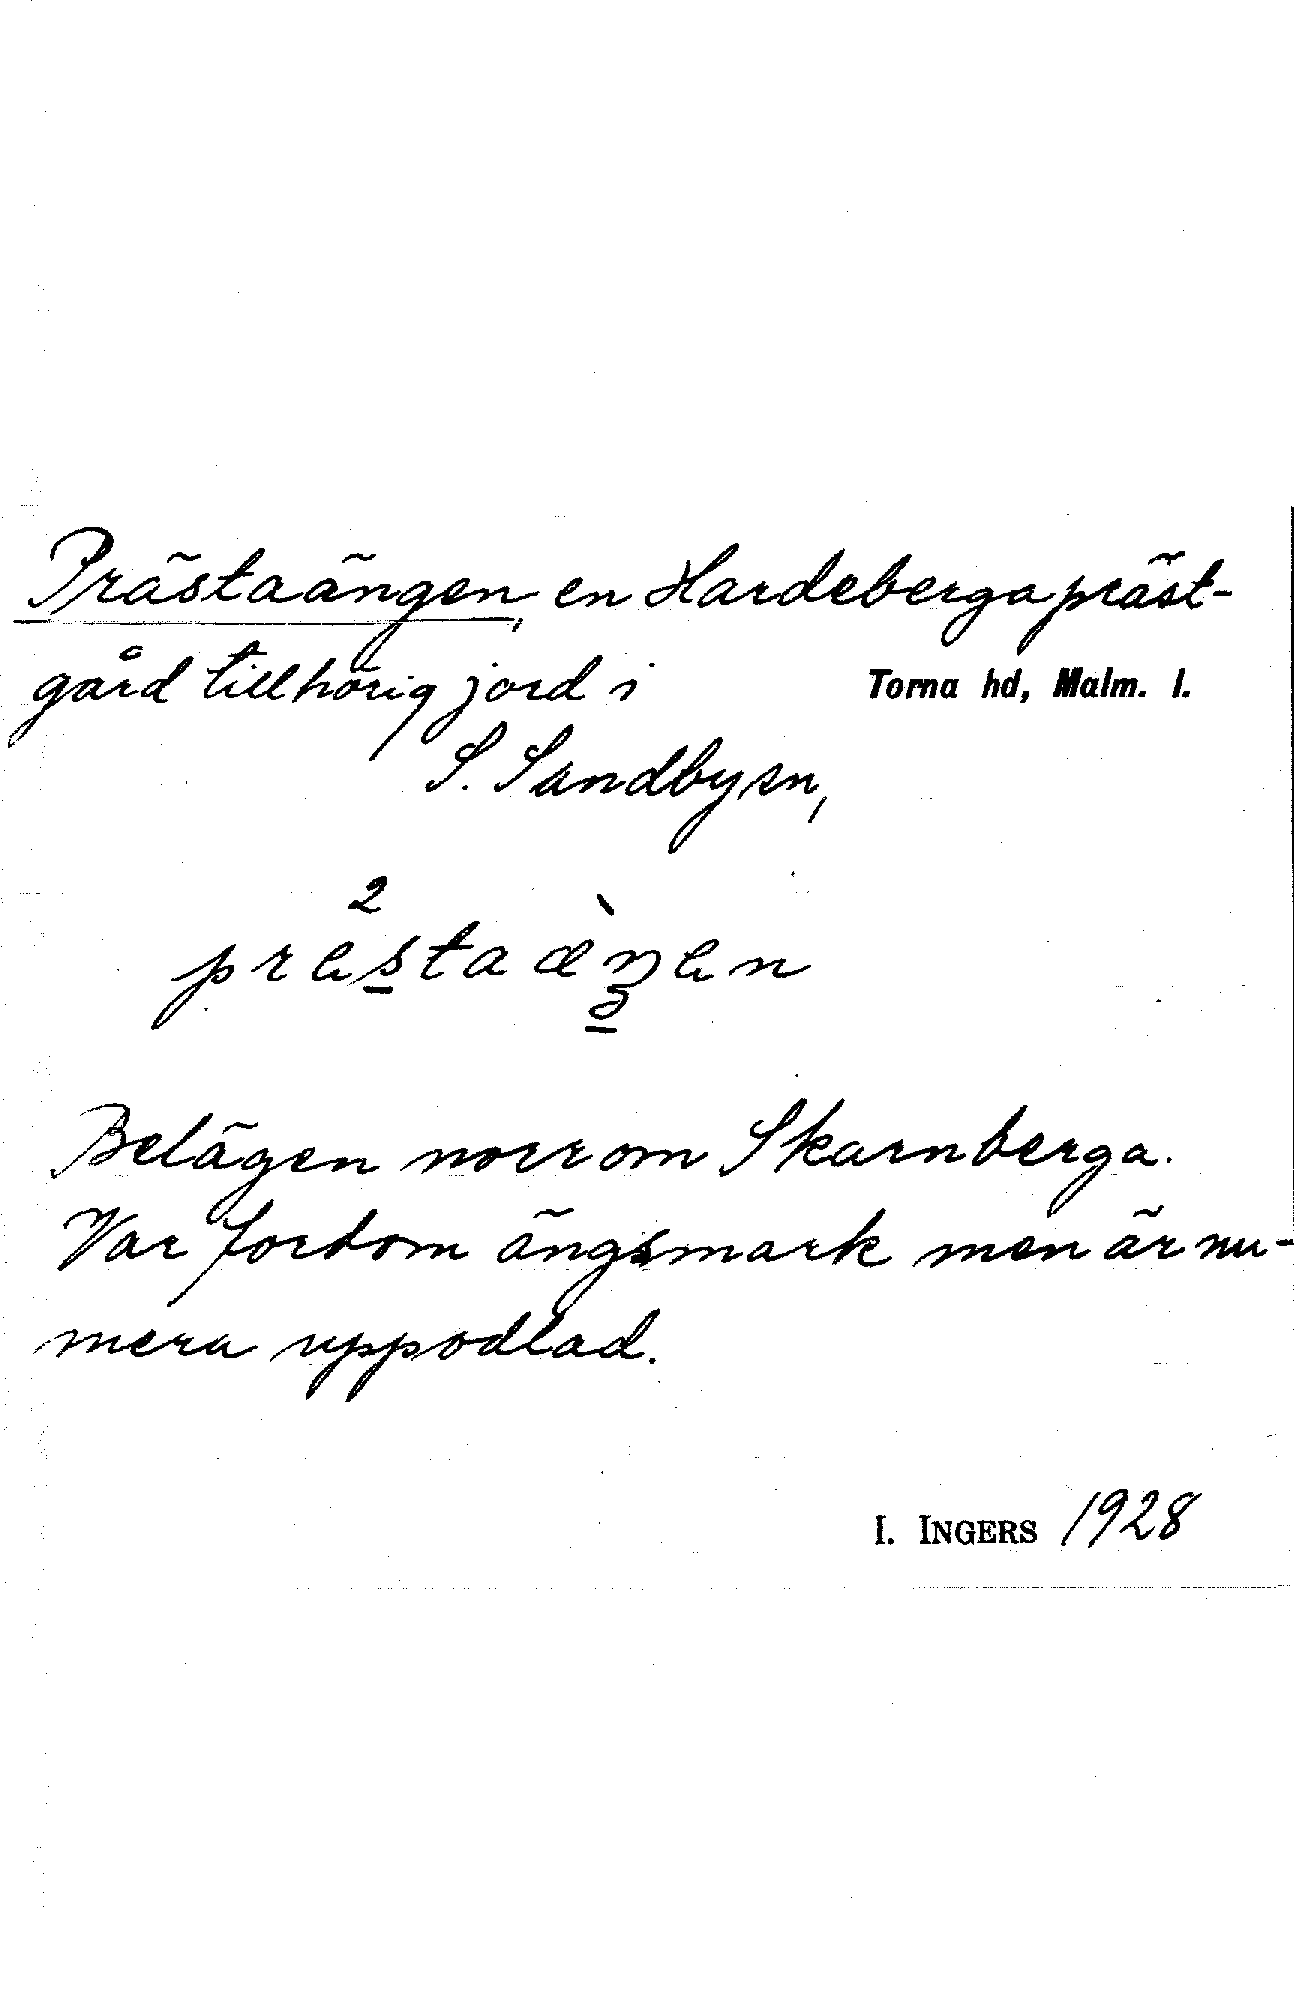 Prästaängen, en Hardeberga präst-
gård tillhörig jord i Torna hd, Malm. l.
S. Sandby sn,
Belägen norr om Skarnberga.
Var fordom ängsmark men är nu-
mera uppodlad.
I. INGERS 1928